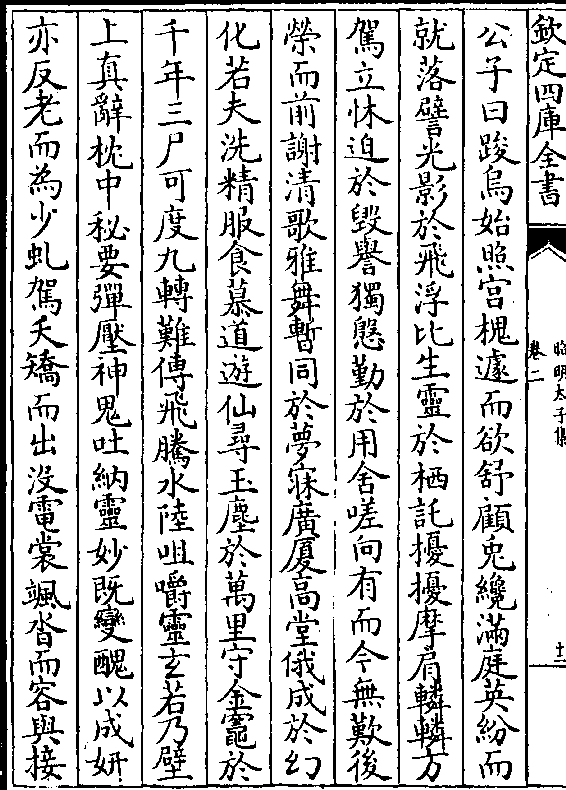 欽定四庫全書
昭明太子集
卷二
十二
公子曰踆烏始照宫槐遽而欲舒顧兎纔滿庭英紛而
就落譬光影於飛浮比生靈於栖託擾擾摩肩轔轔方
駕立怵迫於毀譽獨慇勤於用舍嗟向有而今無歎後
榮而前謝清歌雅舞暫同於夢寐廣厦高堂俄成於幻
化若夫洗精服食慕道遊仙尋玉塵於萬里守金竈於
千年三尸可度九轉難傳飛騰水陸咀嚼靈玄若乃壁
上真辭枕中秘要彈壓神鬼吐納靈妙既變醜以成妍
亦反老而為少虬駕夭矯而出没電裳颯沓而容與接